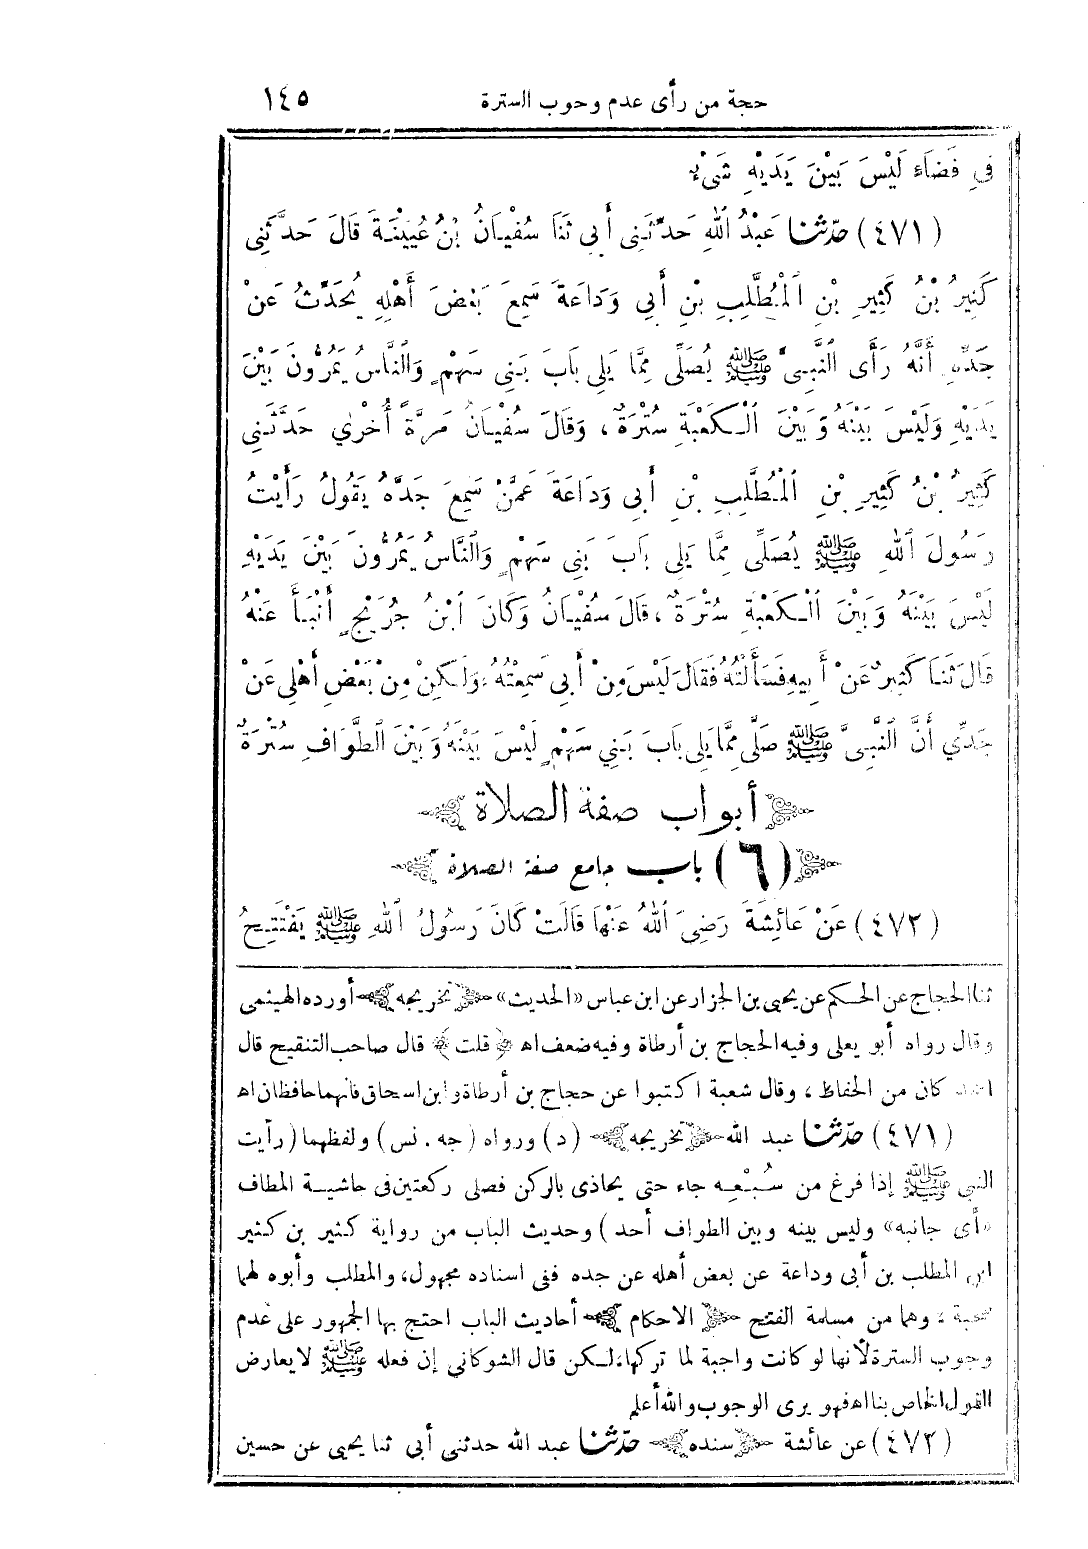 حجة من رأى عدم وجوب السترة ١٤٥
فِي فَضَاءِ لَيْسَ بَيْنَ يَدَيْهِ شَيْءٌ
(٤٧١) حدّثنا عَبْدُ اللهِ حَدَّثَنِي أَبِي ثَنَا سُفْيَانُ بْنُ عُيَيْنَةَ قَالَ حَدَّثَنِي
كَثِيرُ بْنُ كَثِيرِ بْنِ الْمُطَّلِبِ بْنِ أَبِي وَدَاعَةَ سَمِعَ بَعْضَ أَهْلِهِ يُحَدِّثُ عَنْ
جَدِّهِ أَنَّهُ رَأَى النَّبِيَّ ﷺ يُصَلِّي مِمَّا يَلِي بَابَ بَنِي سَهْمٍ وَالنَّاسُ يَمُرُّونَ بَيْنَ
يَدَيْهِ وَلَيْسَ بَيْنَهُ وَبَيْنَ الْكَعْبَةِ سُتْرَةٌ، وَقَالَ سُفْيَانُ مَرَّةً أُخْرَى حَدَّثَنِي
كَثِيرُ بْنُ كَثِيرِ بْنِ الْمُطَّلِبِ بْنِ أَبِي وَدَاعَةَ عَمَّنْ سَمِعَ جَدَّهُ يَقُولُ رَأَيْتُ
رَسُولَ اللهِ ﷺ يُصَلِّي مِمَّا يَلِي بَابَ بَنِي سَهْمٍ وَالنَّاسُ يَمُرُّونَ بَيْنَ يَدَيْهِ
لَيْسَ بَيْنَهُ وَبَيْنَ الْكَعْبَةِ سُتْرَةٌ، قَالَ سُفْيَانُ وَكَانَ ابْنُ جُرَيْجٍ أَنْبَأَ عَنْهُ
قَالَ ثَنَا كَثِيرٌ عَنْ أَبِيهِ فَسَأَلْتُهُ فَقَالَ لَيْسَ مِنْ أَبِي سَمِعْتُهُ، وَلَكِنْ مِنْ بَعْضِ أَهْلِي عَنْ
جَدِّي أَنَّ النَّبِيَّ ﷺ صَلَّى مِمَّا يَلِي بَابَ بَنِي سَهْمٍ لَيْسَ بَيْنَهُ وَبَيْنَ الطَّوَافِ سُتْرَةٌ
أبواب صفة الصلاة
(٦) باب جامع صفة الصلاة
(٤٧٢) عَنْ عَائِشَةَ رَضِيَ اللهُ عَنْهَا قَالَتْ كَانَ رَسُولُ اللهِ ﷺ يَفْتَتِحُ
ثنا الحجاج عن الحكم عن يحيى بن الجزار عن ابن عباس «الحديث» ﴿تخريجه﴾ أورده الهيثمى
وقال رواه أبو يعلى وفيه الحجاج بن أرطاة وفيه ضعف اه ﴿قلت﴾ قال صاحب التنقيح قال
احمد كان من الحفاظ، وقال شعبة اكتبوا عن حجاج بن أرطاة وابن اسحاق فانهما حافظان اه
(٤٧١) حدّثنا عبد الله ﴿تخريجه﴾ (د) ورواه (جه . نس) ولفظهما (رأيت
النبي ﷺ إذا فرغ من سُبْعِه جاء حتى يحاذى بالركن فصلى ركعتين فى حاشية المطاف
«أى جانبه» وليس بينه وبين الطواف أحد) وحديث الباب من رواية كثير بن كثير
ابن المطلب بن أبى وداعة عن بعض أهله عن جده ففى اسناده مجهول، والمطلب وأبوه لهما
صحبة، وهما من مسلمة الفتح ﴿الاحكام﴾ أحاديث الباب احتج بها الجمهور على عدم
وجوب السترة لأنها لو كانت واجبة لما تركها، لكن قال الشوكاني إن فعله ﷺ لا يعارض
القول الخاص بنا اه فهو يرى الوجوب والله أعلم
(٤٧٢) عن عائشة ﴿سنده﴾ حدّثنا عبد الله حدثنى أبى ثنا يحيى عن حسين